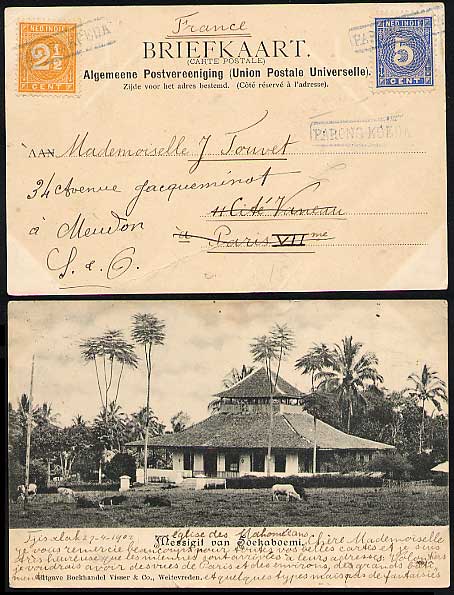 France
NED.INDIE
2½
CENT
KOEDA
NED.INDIE
5
CENT
BRIEFKAART.
(CARTE POSTALE)
Algemeene Postvereeniging (Union Postale Universelle).
Zijde voor het adres bestemd. (Côté réservé à l'adresse).
PARONG KOEDA
AAN Mademoiselle J Touvet
34 Avenue Jacqueminot
11 Cité Vaneau
à Meudon
à Paris VII me
S. & O.
Eglise des Mahométans
Messigit van Soekaboemi.
27-4-1902 Chère Mademoiselle
je vous remercie beaucoup pour toutes vos belles cartes et je suis
très heureuse que les miennes sont arrivées à leurs adresses. Volontiers
je voudrais avoir des vues de Paris et des environs, des grands
Uitgave Boekhandel Visser & Co., Weltevreden.
et quelques types mais pas de fantaisies